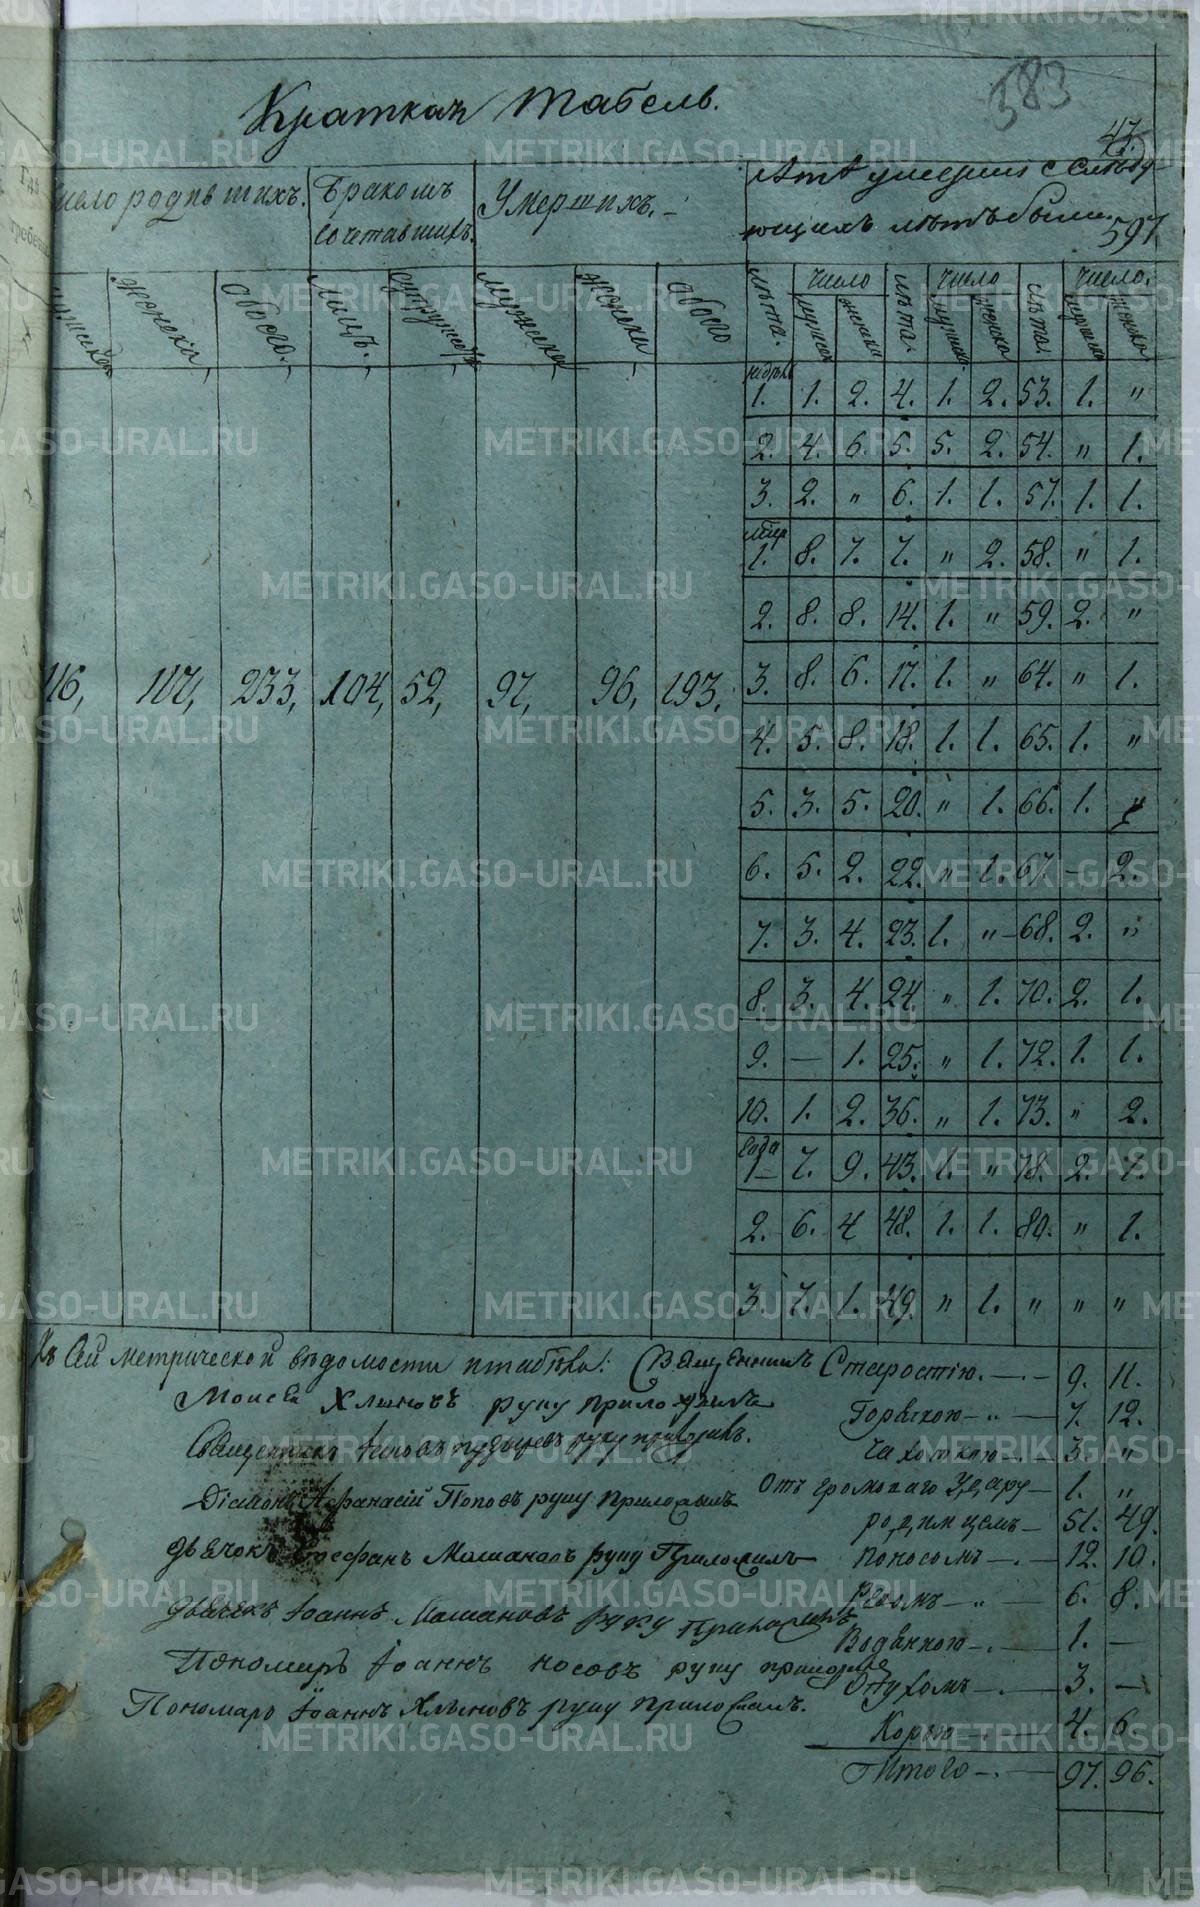 Краткая табель.
583
47.
597
число родившихъ.
Бракомъ сочетавшихъ.
Умершихъ.
Лѣта умерших с слѣдующихъ лѣтъ были.
мужска женска обоего. лицъ. супружествъ мужска женска обоего
лѣта. число мужска женска лѣта. число мужска женска лѣта. число. мужска женска
недѣль
1. 1. 2. 4. 1. 2. 53. 1. "
2. 4. 6. 5. 5. 2. 54. " 1.
3. 2. " 6. 1. 1. 57. 1. 1.
мѣсяц
1. 8. 7. 7. " 2. 58. " 1.
2. 8. 8. 14. 1. " 59. 2. "
116, 117, 233, 104, 52, 97, 96, 193.
3. 8. 6. 17. 1. " 64. " 1.
4. 5. 8. 18. 1. 1. 65. 1. "
5. 3. 5. 20. " 1. 66. 1. "
6. 5. 2. 22. " 1. 67. - 2.
7. 3. 4. 23. 1. " 68. 2. "
8. 3. 4. 24. " 1. 70. 2. 1.
9. — 1. 25. " 1. 72. 1. 1.
10. 1. 2. 36. " 1. 73. " 2.
Года
1 7. 9. 43. 1. " 78. 2. 1.
2. 6. 4 48. 1. 1. 80. " 1.
3. 7. 1. 49. " 1. " " "
Къ сей метрической вѣдомости и табѣли: Священникъ
Моисей Хлыновъ руку приложилъ
Священникъ руку приложилъ.
Діаконъ Афанасій Поповъ руку приложилъ
дьячокъ Стефанъ Мошановъ руку Приложилъ
дьячекъ Іоаннъ Мошановъ руку Приложилъ
Пономарь Іоаннъ Носовъ руку приложилъ
Пономарь Іоаннъ Хлыновъ руку приложилъ.
Старостію. — 9. 11.
Горячкою — " — 7. 12.
Чахоткою — 3. "
Отъ громоваго Удару — 1. "
родимцемъ — 51. 49.
Поносомъ — 12. 10.
Рвомъ — " — 6. 8.
Водянкою — 1. —
Опухомъ — 3. —
Корью 4. 6
Итого — 97. 96.
METRIKI.GASO-URAL.RU